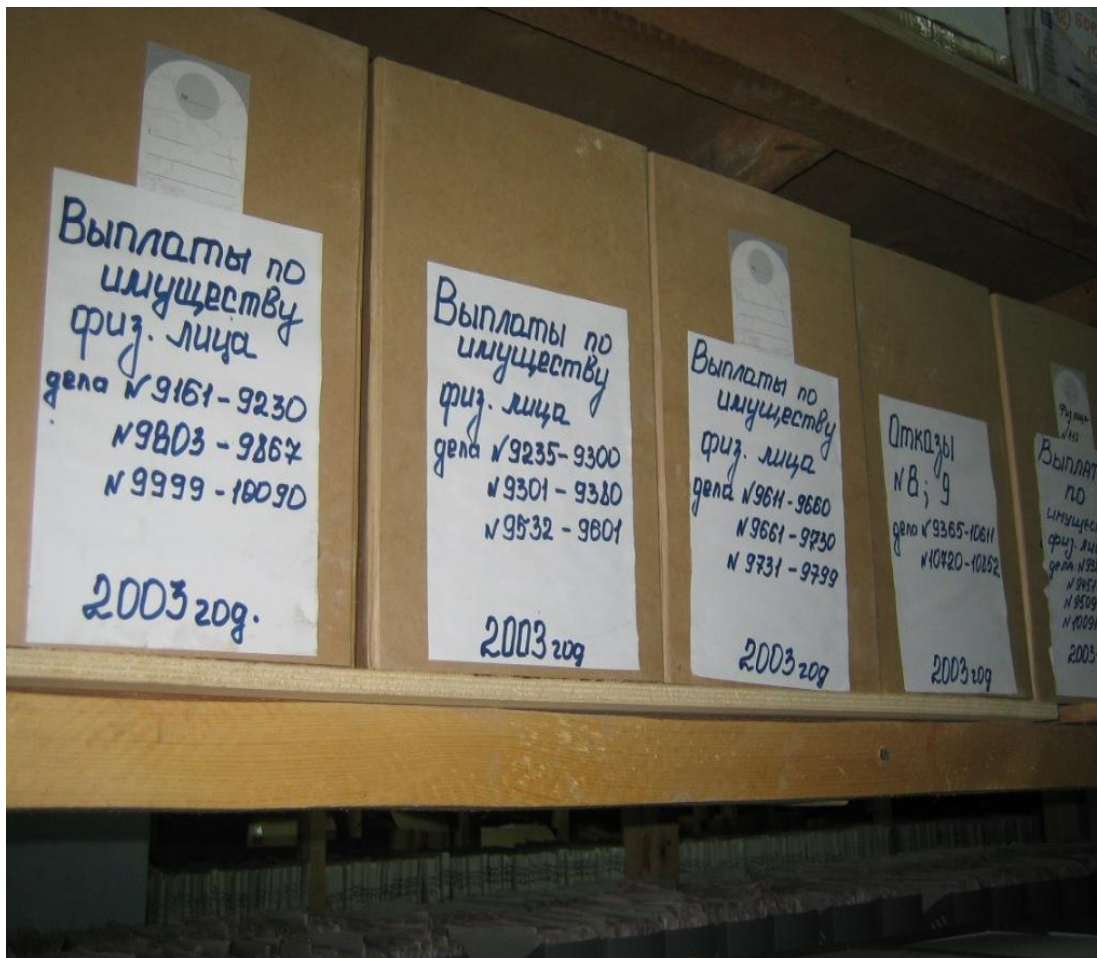 Выплаты по
имуществу
физ. лица
дела N9161-9230
N9803-9867
N9999-10090
2003 год.
Выплаты по
имуществу
физ. лица
дела N9235-9300
N9301-9380
N9532-9601
2003 год
Выплаты по
имуществу
физ. лица
дела N9611-9660
N9661-9730
N9731-9799
2003 год
Отказы
N8; 9
дела N9365-10611
N10720-10862
2003 год
Физ лица
Выплат
по
имущес
физ. ли
дела N93
N9451
N9509
N1009
2003